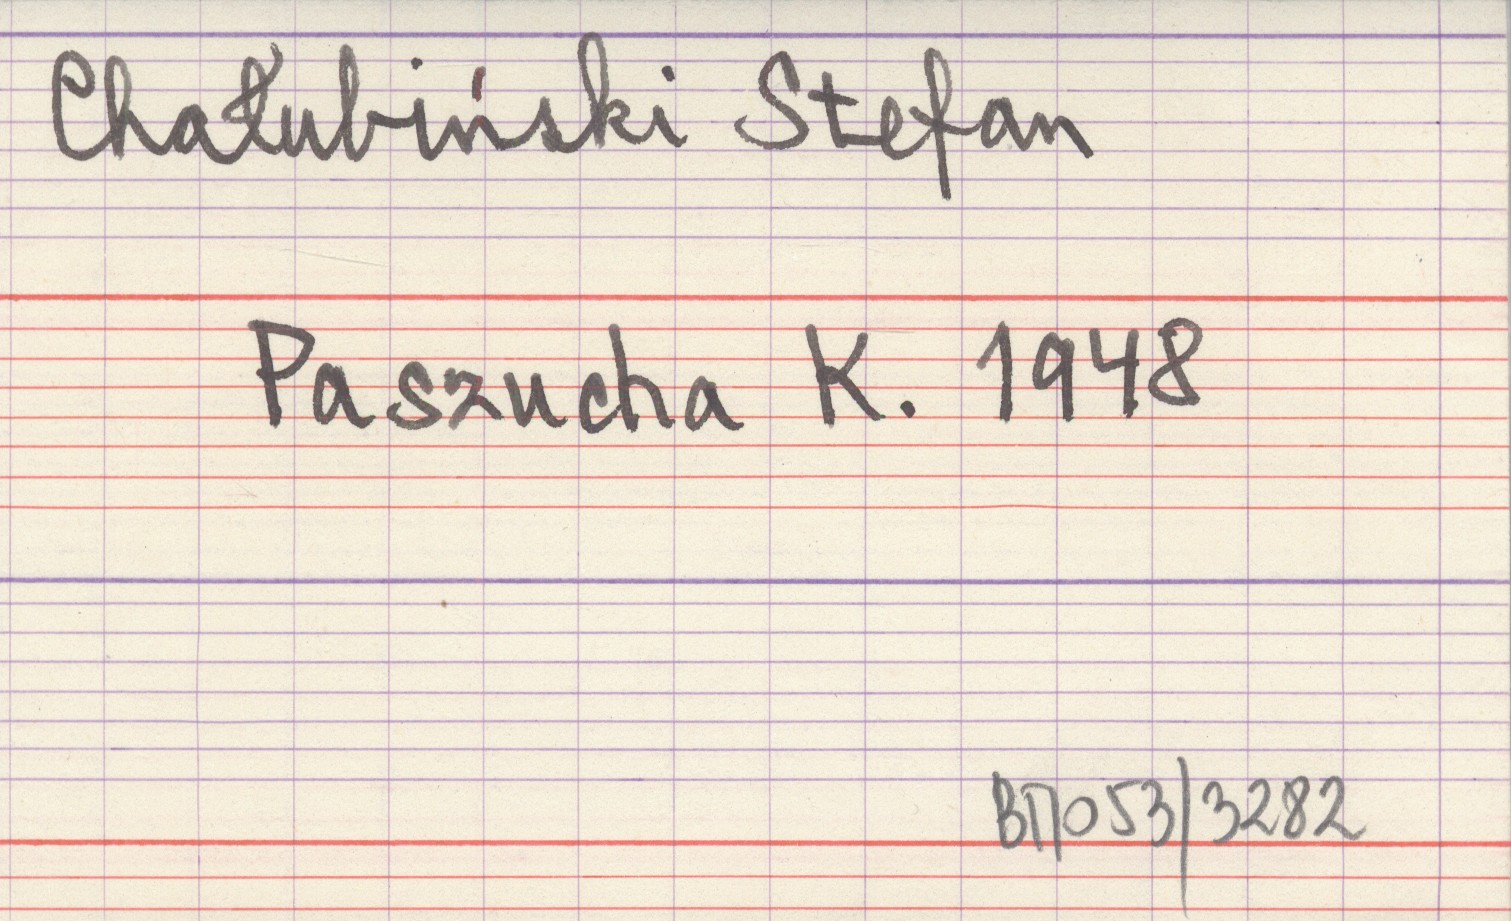 Chałubiński Stefan
Paszucha K. 1948
ВП053/3282